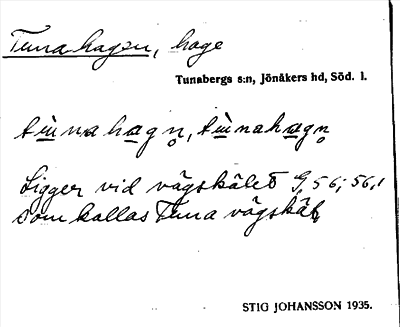 Tuna hagen, hage
Tunabergs s:n, Jönåkers hd, Söd. l.
tùna hagn̥, tùnahagn̥
Ligger vid vägskälet G, 56; 56,1
som kallas Tuna vägskäl,
STIG JOHANSSON 1935.